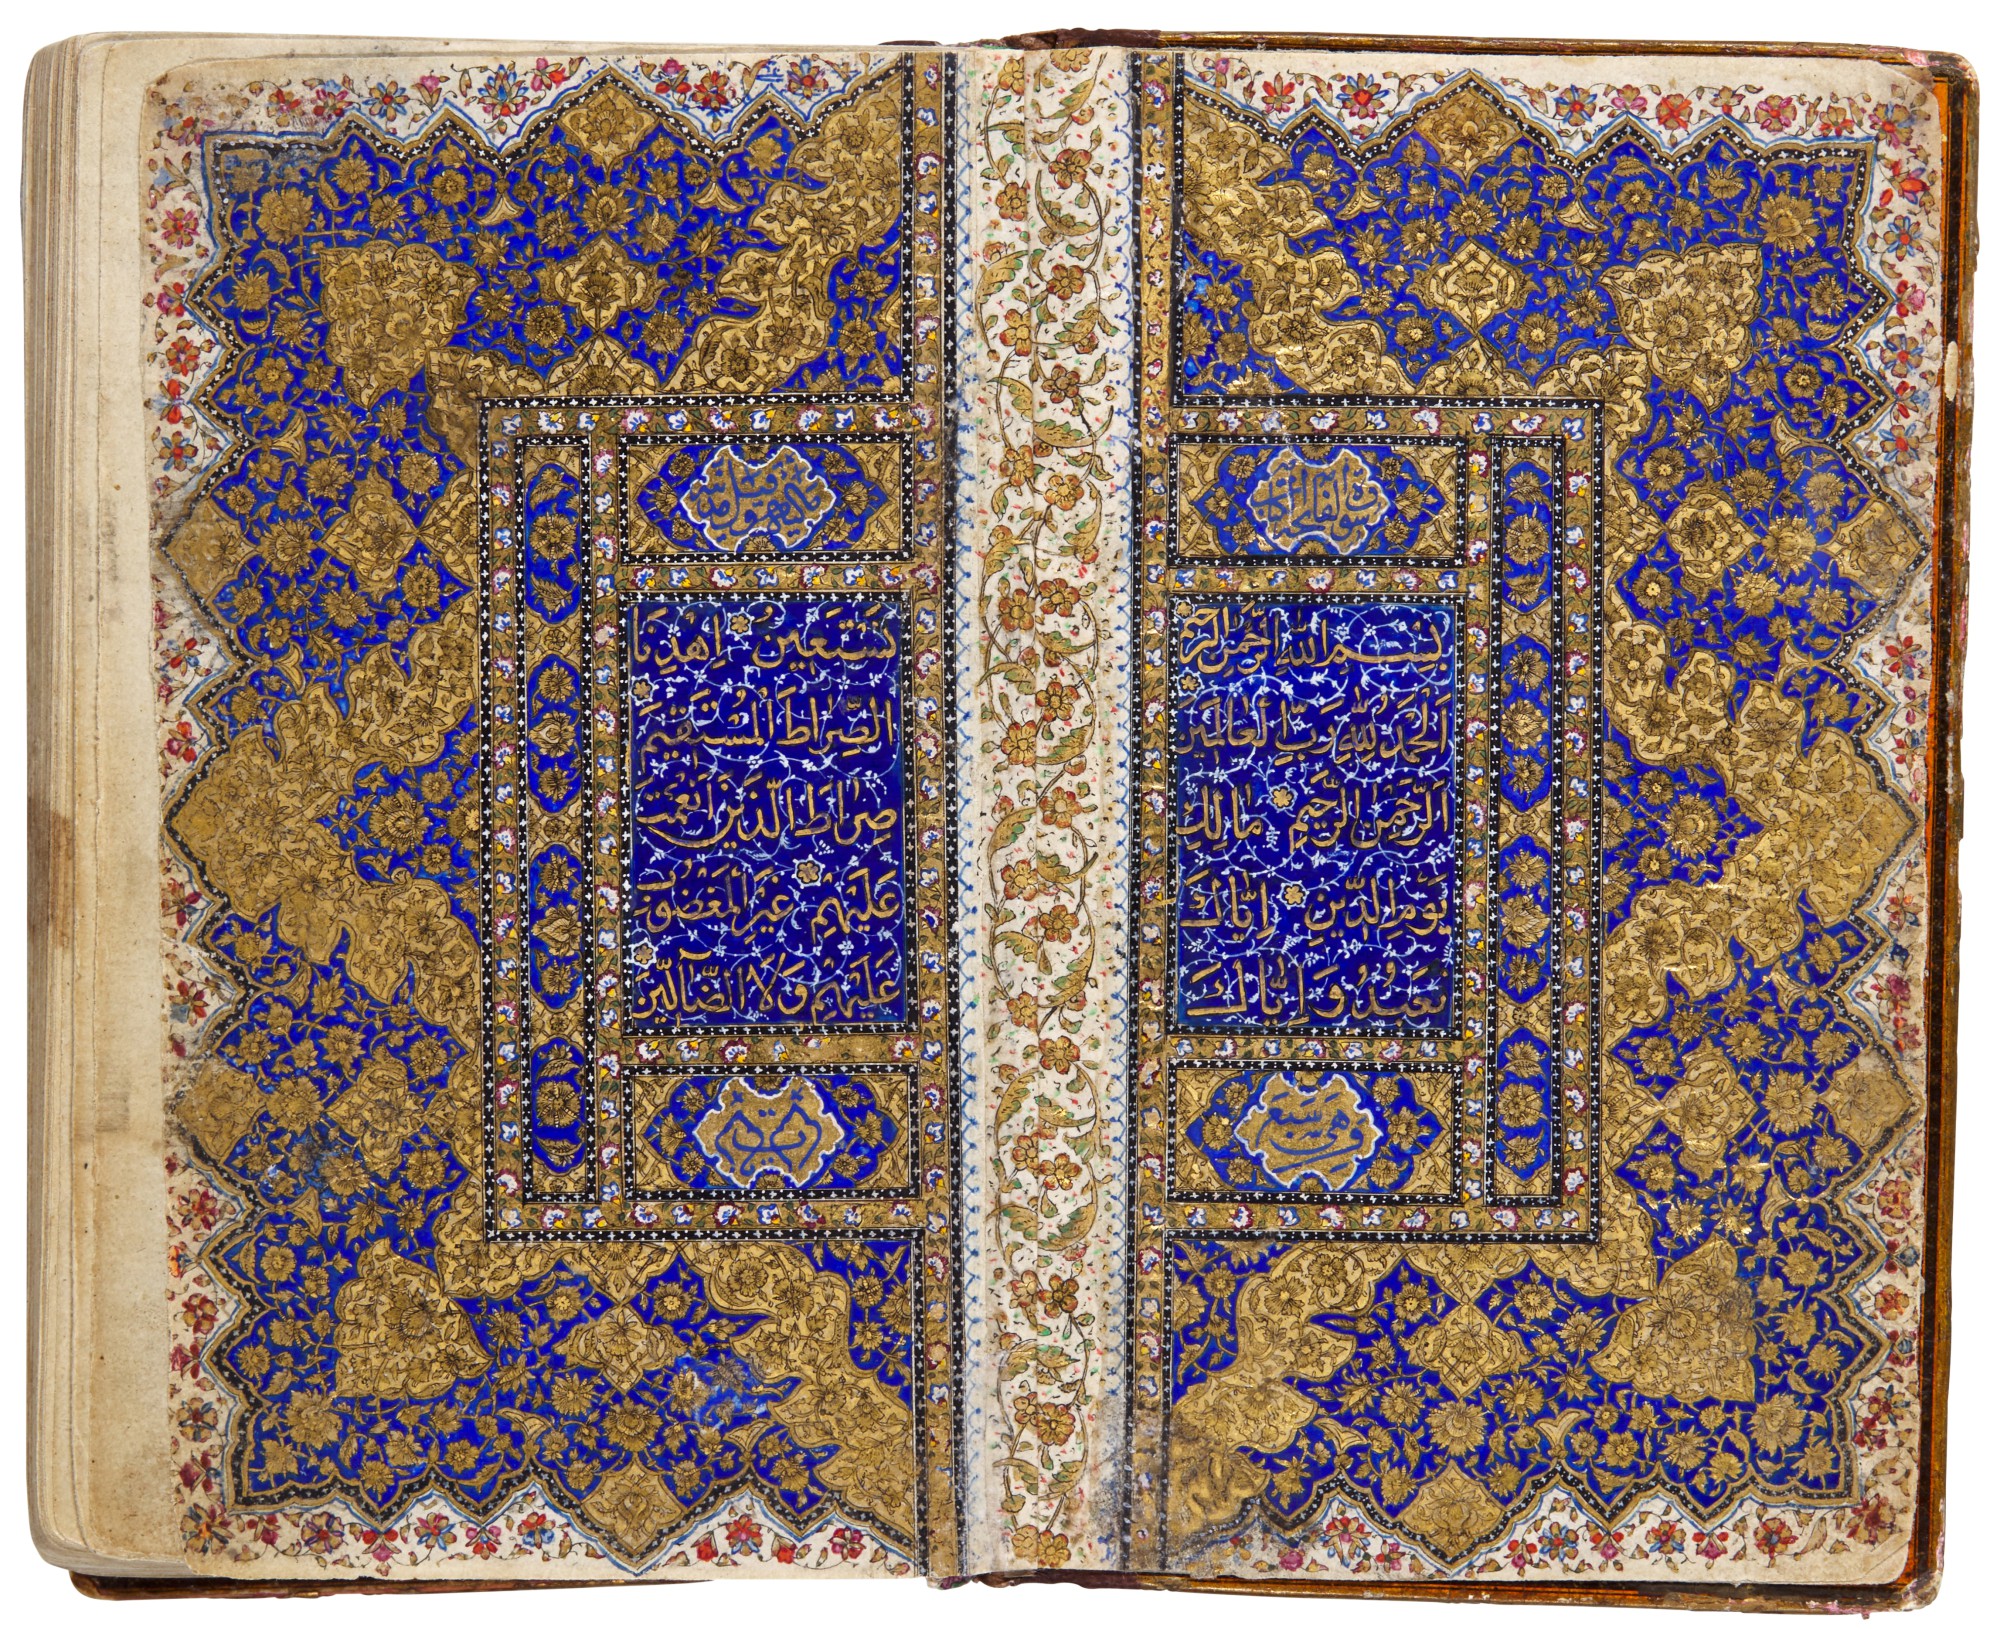 سورة فاتحة الكتاب
بِسْمِ اللّٰهِ الرَّحْمٰنِ الرَّحِيمِ
اَلْحَمْدُ لِلّٰهِ رَبِّ الْعَالَمِينَ
اَلرَّحْمٰنِ الرَّحِيمِ مَالِكِ
يَوْمِ الدِّينِ اِيَّاكَ
نَعْبُدُ وَاِيَّاكَ
نَسْتَعِينُ اِهْدِنَا
الصِّرَاطَ الْمُسْتَقِيمَ
صِرَاطَ الَّذِينَ اَنْعَمْتَ
عَلَيْهِمْ غَيْرِ الْمَغْضُوبِ
عَلَيْهِمْ وَلَا الضَّآلِّينَ